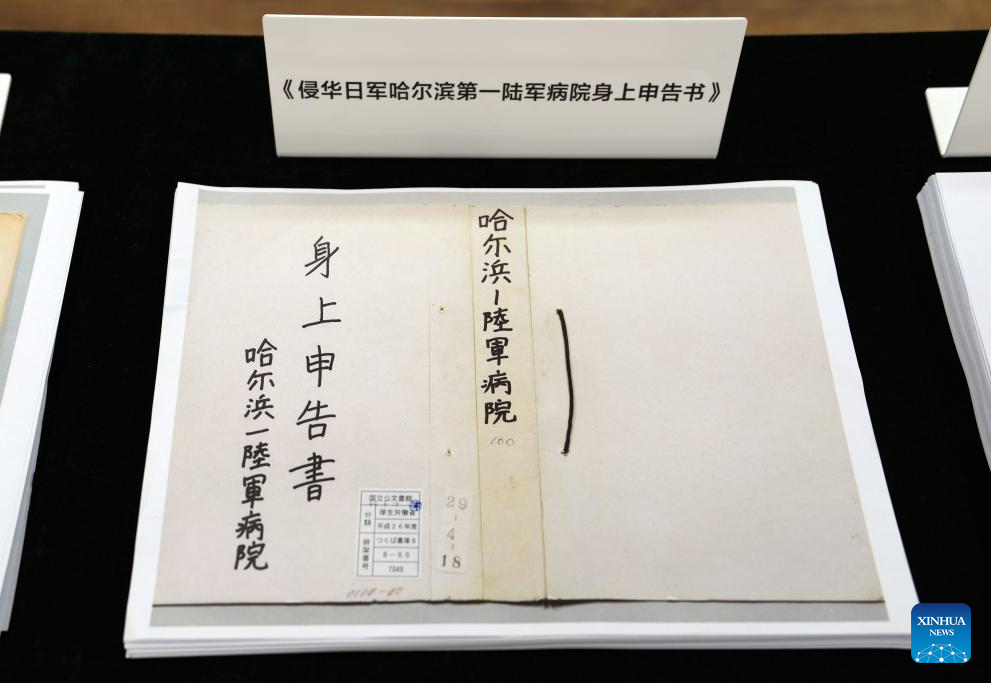 《侵华日军哈尔滨第一陆军病院身上申告书》
哈尔浜一陸軍病院
100
身上申告書
哈尔浜一陸軍病院
国立公文書館
分類
厚生労働省
平成26年度
つくば書庫8
排架番号
8-66
7049
29-4-18
XINHUA
NEWS